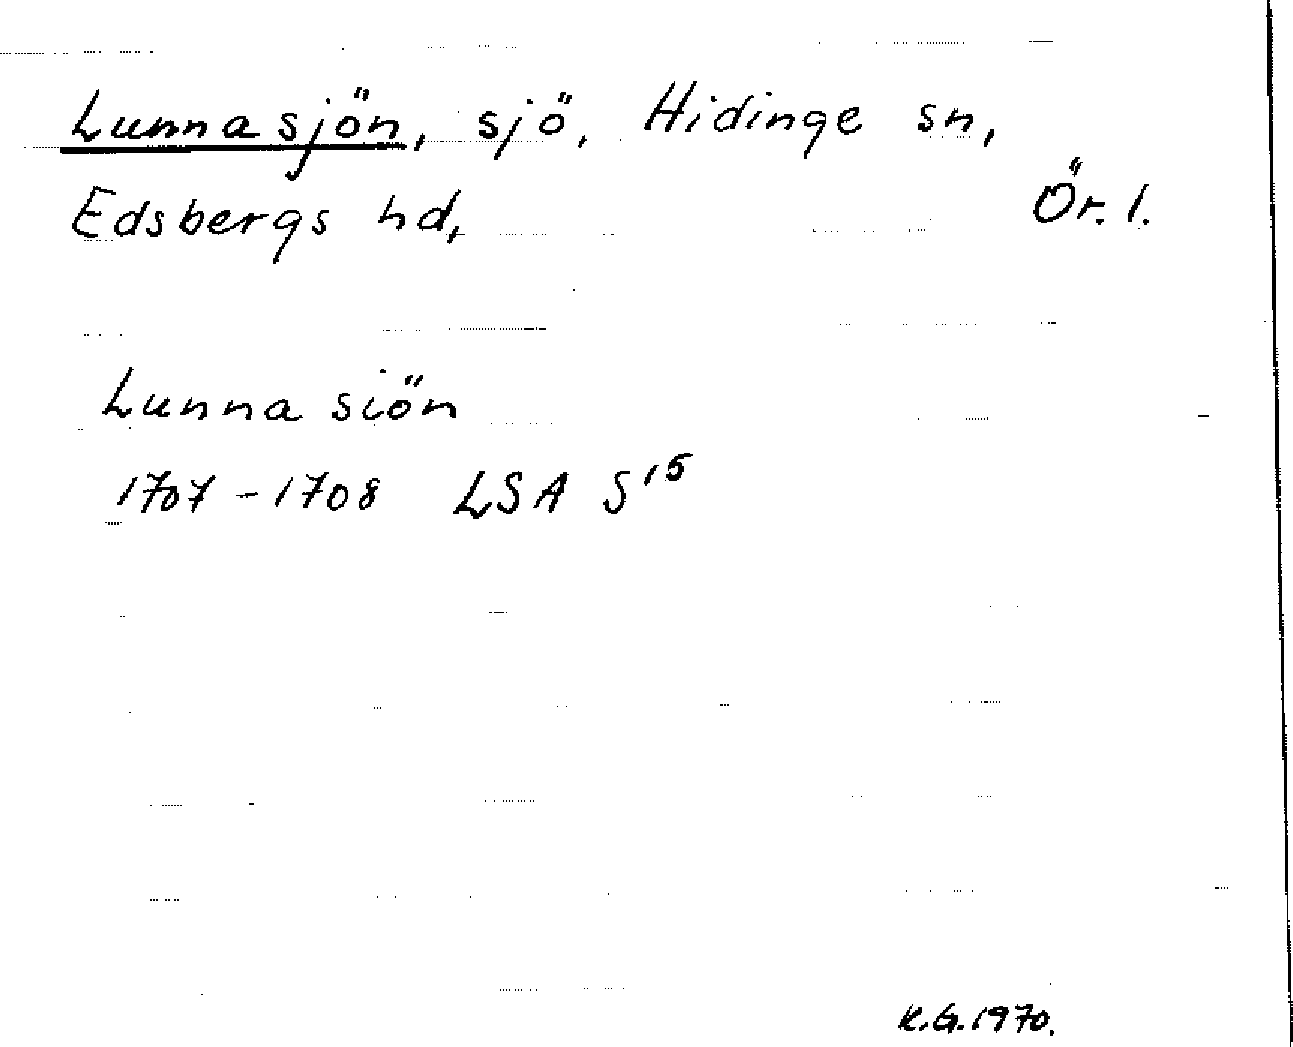 Lunnasjön, sjö, Hidinge sn,
Edsbergs hd, Ör. l.
Lunna siön
1707-1708 LSA S¹⁵
K.G.1970.